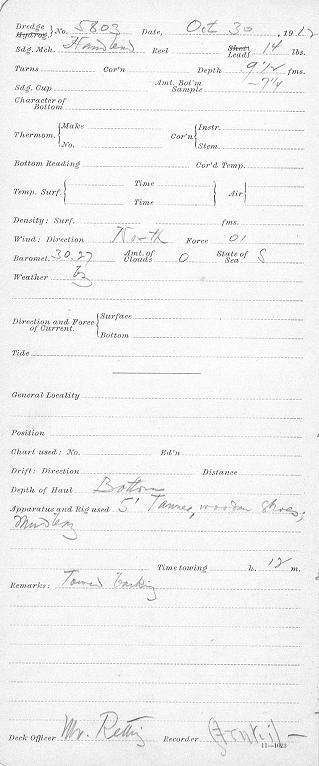 Dredge
Hydrog. } No. 5803 Date, Oct 30, 1912
Sdg. Mch. Hand lead Reel Shot Lead } 14 lbs.
Turns Cor'n Depth 9½ fms.
Sdg. Cup Amt. Bot'm Sample -7¼
Character of Bottom
Thermom. { Make No. } Cor'n { Instr. Stem.
Bottom Reading Cor'd Temp.
Temp. Surf. { Time Time } Air {
Density: Surf. fms.
Wind: Direction North Force 01
Baromet. 30.27 Amt. of Clouds 0 State of Sea S
Weather bz
Direction and Force of Current. { Surface Bottom
Tide
General Locality
Position
Chart used: No. Ed'n
Drift: Direction Distance
Depth of Haul Bottom
Apparatus and Rig used 5' Tanner, wooden shoes,
Mud bag
Time towing h. 12 m.
Remarks: Towed backing
Deck Officer Mr. Rettig Recorder
11—1023